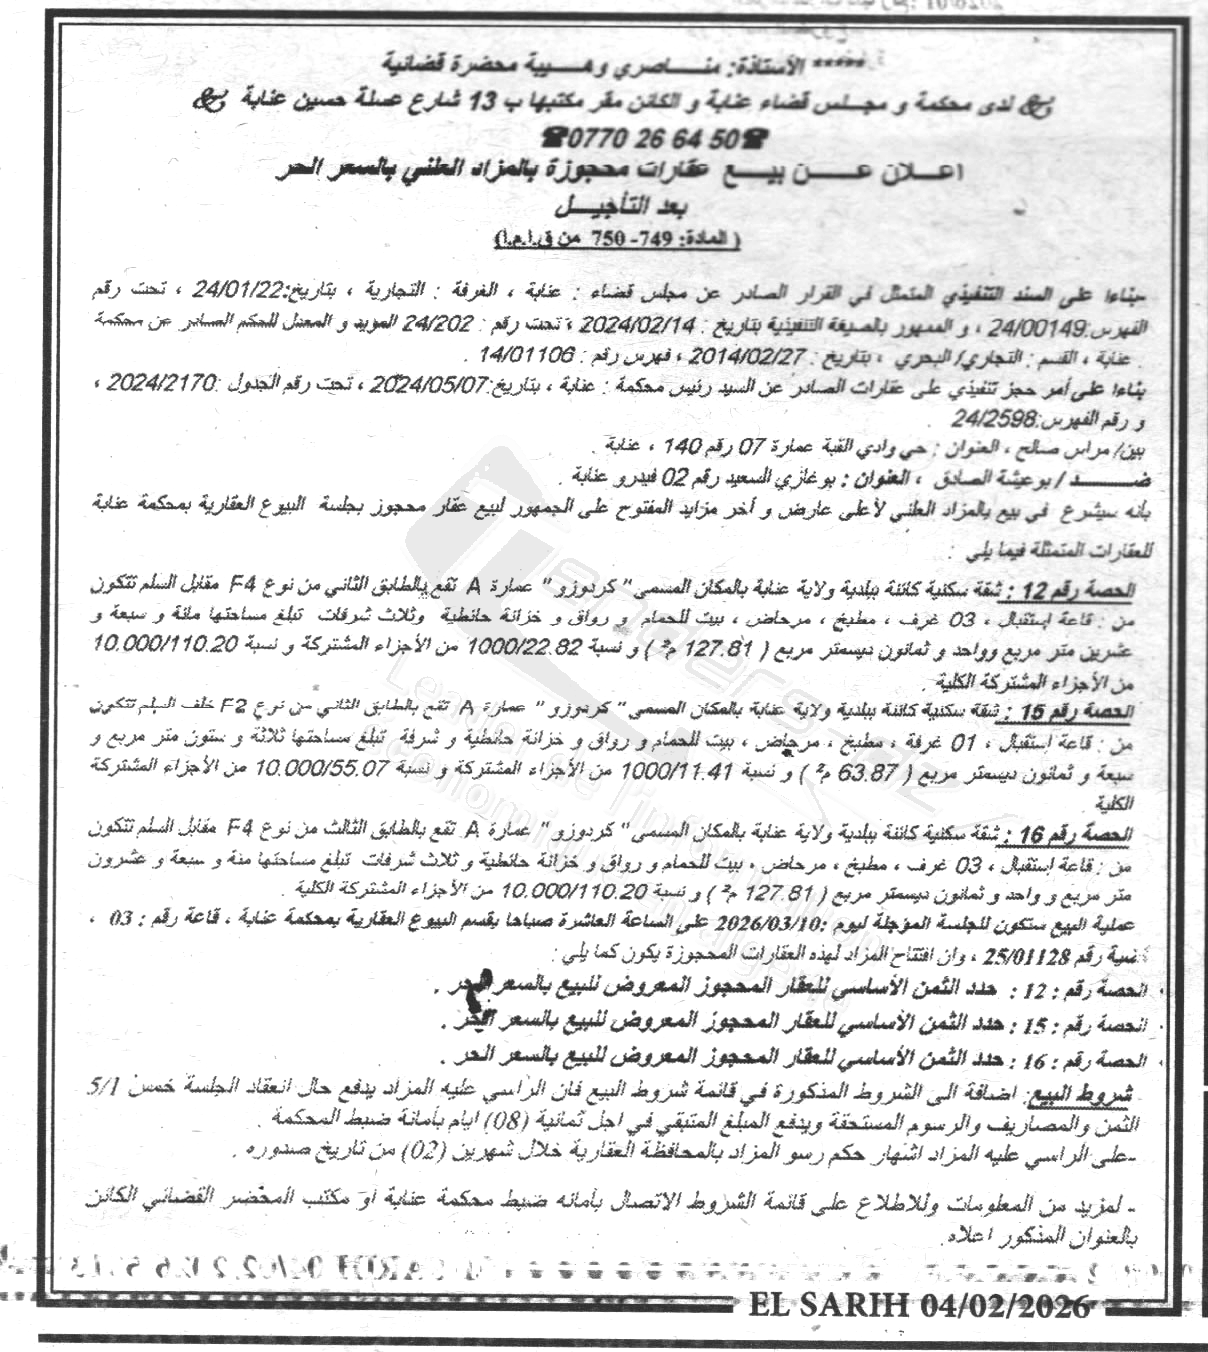 ***** الأستاذة: مناصري وهيبة محضرة قضائية
لدى محكمة و مجلس قضاء عنابة و الكائن مقر مكتبها ب 13 شارع عسلة حسين عنابة
☎0770 26 64 50☎
اعلان عن بيع عقارات محجوزة بالمزاد العلني بالسعر الحر
بعد التأجيل
( المادة: 749- 750 من ق.ا.م.ا)
-بناءا على السند التنفيذي المتمثل في القرار الصادر عن مجلس قضاء : عنابة ، الغرفة : التجارية ، بتاريخ:24/01/22 ، تحت رقم
الفهرس:24/00149 ، و الممهور بالصيغة التنفيذية بتاريخ : 2024/02/14 ، تحت رقم : 24/202 المؤيد و المعدل للحكم الصادر عن محكمة
عنابة ، القسم : التجاري/ البحري ، بتاريخ : 2014/02/27 ، فهرس رقم : 14/01106 .
بناءا على أمر حجز تنفيذي على عقارات الصادر عن السيد رئيس محكمة : عنابة ، بتاريخ:2024/05/07 ، تحت رقم الجدول :2024/2170 ،
و رقم الفهرس:24/2598 .
بين/ مراس صالح ، العنوان : حي وادي القبة عمارة 07 رقم 140 ، عنابة .
ضــــد / بوعيشة الصادق ، العنوان : بوغازي السعيد رقم 02 فيدرو عنابة .
بأنه سيشرع في بيع بالمزاد العلني لأعلى عارض و أخر مزايد المفتوح على الجمهور لبيع عقار محجوز بجلسة البيوع العقارية بمحكمة عنابة
للعقارات المتمثلة فيما يلي :
الحصة رقم 12 : شقة سكنية كائنة ببلدية ولاية عنابة بالمكان المسمى" كردوزو" عمارة A تقع بالطابق الثاني من نوع F4 مقابل السلم تتكون
من : قاعة إستقبال ، 03 غرف ، مطبخ ، مرحاض ، بيت للحمام و رواق و خزانة حائطية وثلاث شرفات تبلغ مساحتها مائة و سبعة و
عشرين متر مربع وواحد و ثمانون ديسمتر مربع ( 127.81 م² ) و نسبة 1000/22.82 من الأجزاء المشتركة و نسبة 10.000/110.20
من الأجزاء المشتركة الكلية .
الحصة رقم 15 : شقة سكنية كائنة ببلدية ولاية عنابة بالمكان المسمى" كردوزو" عمارة A تقع بالطابق الثاني من نوع F2 خلف السلم تتكون
من : قاعة إستقبال ، 01 غرفة ، مطبخ ، مرحاض ، بيت للحمام و رواق و خزانة حائطية و شرفة تبلغ مساحتها ثلاثة و ستون متر مربع و
سبعة و ثمانون ديسمتر مربع ( 63.87 م² ) و نسبة 1000/11.41 من الأجزاء المشتركة و نسبة 10.000/55.07 من الأجزاء المشتركة
الكلية .
الحصة رقم 16 : شقة سكنية كائنة ببلدية ولاية عنابة بالمكان المسمى" كردوزو" عمارة A تقع بالطابق الثالث من نوع F4 مقابل السلم تتكون
من : قاعة إستقبال ، 03 غرف ، مطبخ ، مرحاض ، بيت للحمام و رواق و خزانة حائطية و ثلاث شرفات تبلغ مساحتها مئة و سبعة و عشرون
متر مربع و واحد و ثمانون ديسمتر مربع ( 127.81 م² ) و نسبة 10.000/110.20 من الأجزاء المشتركة الكلية .
عملية البيع ستكون للجلسة المؤجلة ليوم :2026/03/10 على الساعة العاشرة صباحا بقسم البيوع العقارية بمحكمة عنابة ، قاعة رقم : 03 ،
قضية رقم 25/01128 ، وان افتتاح المزاد لهذه العقارات المحجوزة يكون كما يلي :
الحصة رقم : 12 : حدد الثمن الأساسي للعقار المحجوز المعروض للبيع بالسعر الحر .
الحصة رقم : 15 : حدد الثمن الأساسي للعقار المحجوز المعروض للبيع بالسعر الحر .
الحصة رقم : 16 : حدد الثمن الأساسي للعقار المحجوز المعروض للبيع بالسعر الحر .
شروط البيع: اضافة الى الشروط المذكورة في قائمة شروط البيع فان الراسي عليه المزاد يدفع حال انعقاد الجلسة خمس 5/1
الثمن والمصاريف والرسوم المستحقة ويدفع المبلغ المتبقي في اجل ثمانية (08) ايام بأمانة ضبط المحكمة .
-على الراسي عليه المزاد اشهار حكم رسو المزاد بالمحافظة العقارية خلال شهرين (02) من تاريخ صدوره .
- لمزيد من المعلومات وللاطلاع على قائمة الشروط الاتصال بأمانه ضبط محكمة عنابة أو مكتب المحضر القضائي الكائن
بالعنوان المذكور اعلاه.
EL SARIH 04/02/2026